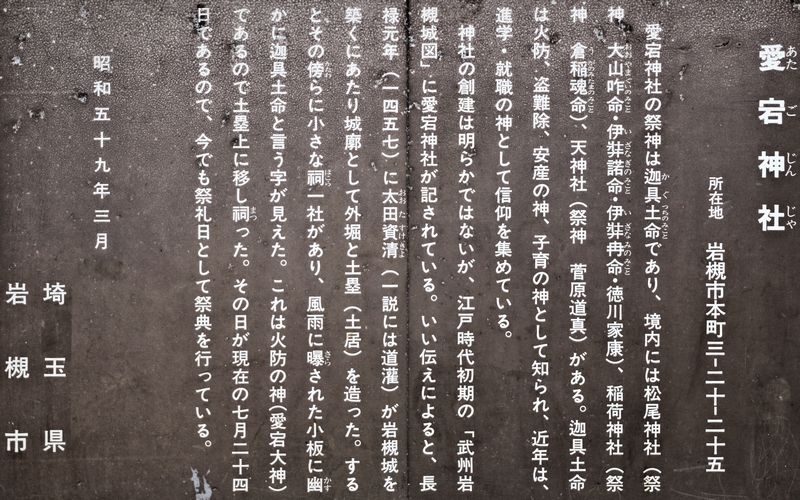 愛宕神社
所在地 岩槻市本町三ー二十ー二十五
愛宕神社の祭神は迦具土命であり、境内には松尾神社（祭
神 大山咋命・伊弉諾命・伊弉冉命・徳川家康）、稲荷神社（祭
神 倉稲魂命）、天神社（祭神 菅原道真）がある。迦具土命
は火防、盗難除、安産の神、子育の神として知られ、近年は、
進学・就職の神として信仰を集めている。
神社の創建は明らかではないが、江戸時代初期の「武州岩
槻城図」に愛宕神社が記されている。いい伝えによると、長
禄元年（一四五七）に太田資清（一説には道灌）が岩槻城を
築くにあたり城廓として外堀と土塁（土居）を造った。する
とその傍らに小さな祠一社があり、風雨に曝された小板に幽
かに迦具土命と言う字が見えた。これは火防の神（愛宕大神）
であるので土塁上に移し祠った。その日が現在の七月二十四
日であるので、今でも祭礼日として祭典を行っている。
昭和五十九年三月
埼玉県
岩槻市